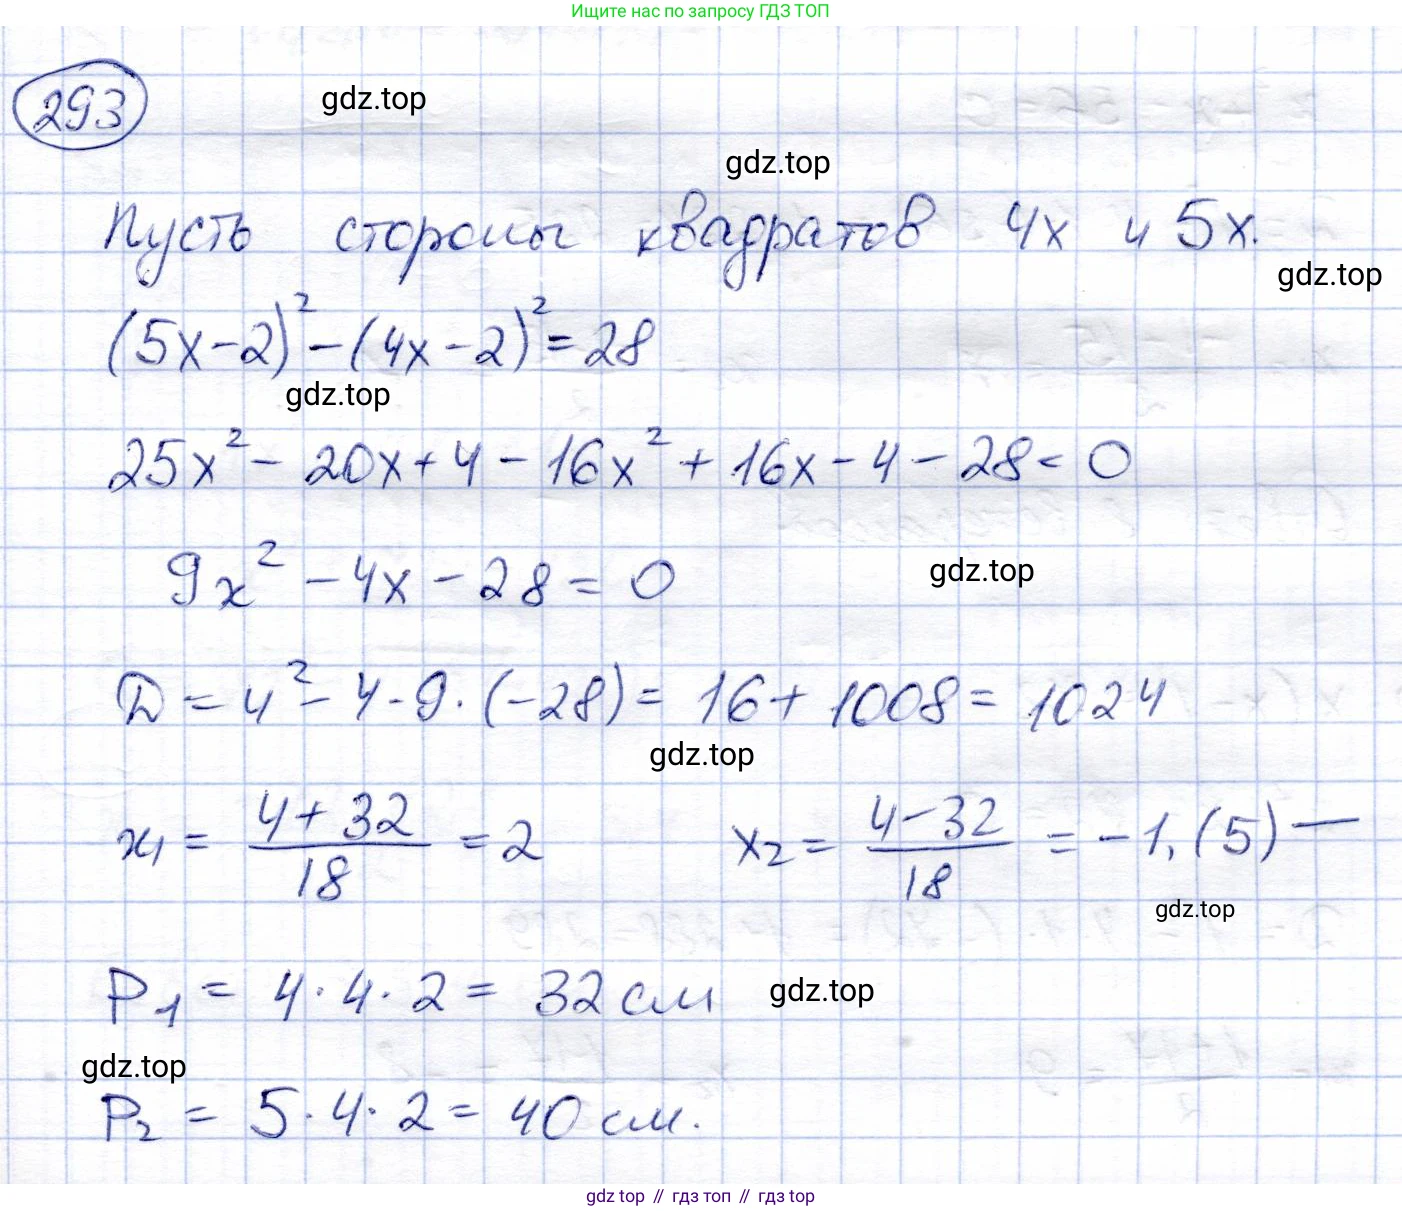 Ищите нас по запросу ГДЗ ТОП
293
gdz.top
gdz.top
Пусть стороны квадратов 4х и 5х.
gdz.top
(5х-2)²-(4х-2)²=28
gdz.top
25х²-20х+4-16х²+16х-4-28=0
9х²-4х-28=0
gdz.top
D=4²-4·9·(-28)=16+1008=1024
gdz.top
x₁ = (4+32)/18 = 2 x₂ = (4-32)/18 = -1,(5) —
gdz.top
P₁ = 4·4·2 = 32 см
gdz.top
gdz.top
P₂ = 5·4·2 = 40 см.
gdz top // гдз топ // гдз top